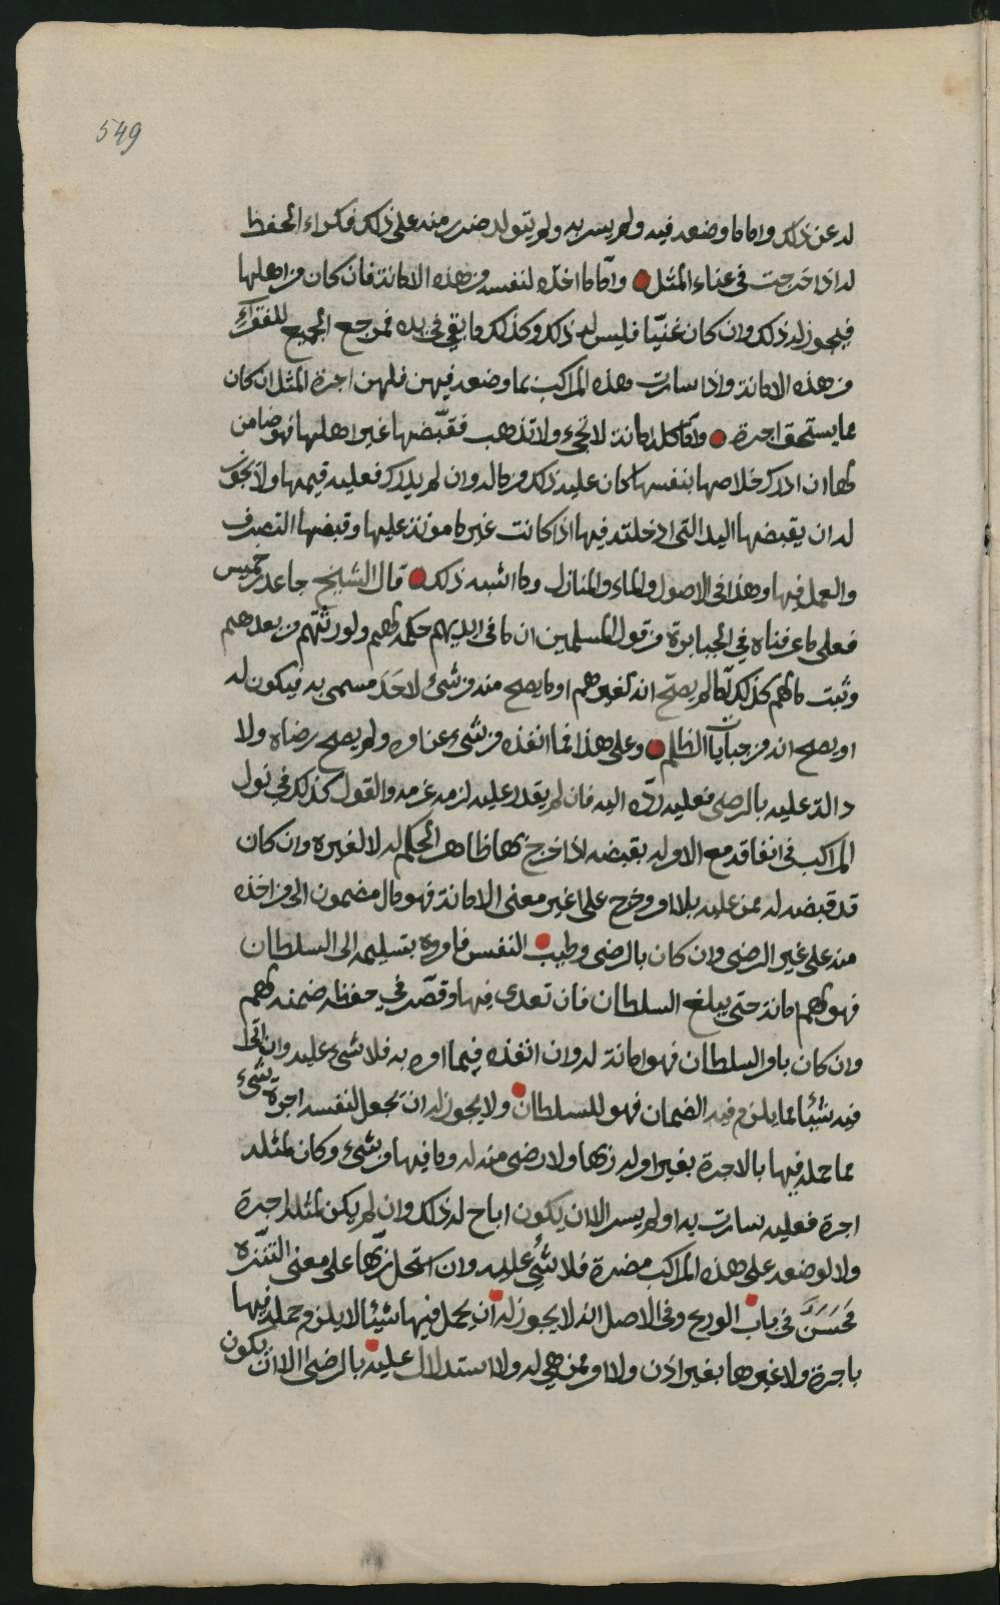 549
له عن ذلك واما ما وضعه فيه ولم يسر به ولم يتولد ضرر منه على ذلك فكراء الحفظ
له اذا خرجت في عناء المثل واما ما اخذه لنفسه من هذه الامانة فان كان من اهلها
فيجوز له ذلك وان كان غنيا فليس له ذلك وكذلك ما بقي في يده فمرجع الجميع للفقراء
من هذه الامانة واذا سارت هذه المراكب بما وضعه فيهن فلهن اجرة المثل ان كان
مما يستحق اجرة واما كل امانة لا تجيء ولا تذهب فقبضها غير اهلها فهو ضامن
لها ان ادرك خلاصها بنفسها كان عليه ذلك من ماله وان لم يدرك فعليه قيمتها ولا يجوز
له ان يقبضها اليد التي ادخلته فيها اذا كانت غير مامونة عليها وقبضها التصرف
والعمل فيها وهذا في الاصول والماء والمنازل وما اشبه ذلك قال الشيخ جاعد بن خميس
فعلى ما عرفناه في الجبابرة من قول المسلمين ان ما في ايديهم حكمه لهم ولورثتهم من بعدهم
وثبت مالهم كذلك لما لم يصح انه لغيرهم او ما يصح منه من شيء لاحد مسمى به فيكون له
او يصح انه من جبايات الظلم وعلى هذا فما انفذه من شيء عن امره ولم يصح رضاه ولا
دالة عليه بالرضى فعليه رده اليه فان لم يقدر عليه لزمه غرمه والقول كذلك في نول
المراكب في انفاقه مع الامر له بقبضه اذا خرج بها ظاهر الحكم له لا لغيره وان كان
قد قبضه له ممن عليه بلا امر وخرج على غير معنى الامانة فهو مال مضمون الى من اخذه
منه على غير الرضى وان كان بالرضى وطيب النفس فامروه بتسليمه الى السلطان
فهو لهم امانة حتى يبلغه السلطان فان تعدى فيها وقصر في حفظه ضمنه لهم
وان كان بامر السلطان فهو امانة له وان انفذه فيما امره به فلا شيء عليه وان اتى
فيه شيئا مما يلزم فيه الضمان فهو للسلطان ولا يجوز له ان يجعل لنفسه اجرة بشيء
مما حمله فيها بالاجرة بغير امر له ربها ولا رضى منه له وما فيها من شيء وكان لمثله
اجرة فعليه سارت به او لم يسر الا ان يكون اباح له ذلك وان لم يكن لمثله اجرة
ولا لوضعه على هذه المراكب مضرة فلا شيء عليه وان استحل ربها على معنى التنزه
فحسن في باب الورع وفي الاصل انه لا يجوز له ان يحمل فيها شيئا لا يلزم حمله فيها
باجرة ولا غيرها بغير اذن ولا امر ممن هي له ولا استدلال عليه بالرضى الا ان يكون